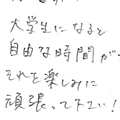 大学生になると
自由な時間が、
それを楽しみに
頑張って下さい!